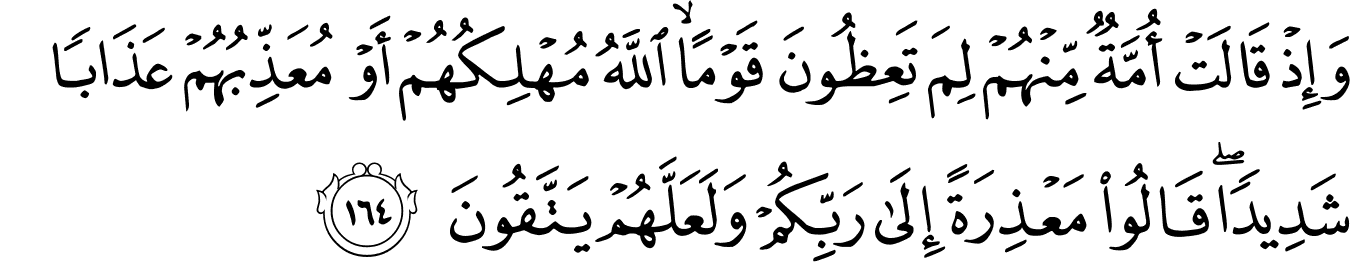 وَإِذۡ قَالَتۡ أُمَّةٞ مِّنۡهُمۡ لِمَ تَعِظُونَ قَوۡمًا ٱللَّهُ مُهۡلِكُهُمۡ أَوۡ مُعَذِّبُهُمۡ عَذَابٗا
شَدِيدٗاۖ قَالُواْ مَعۡذِرَةً إِلَىٰ رَبِّكُمۡ وَلَعَلَّهُمۡ يَتَّقُونَ ١٦٤